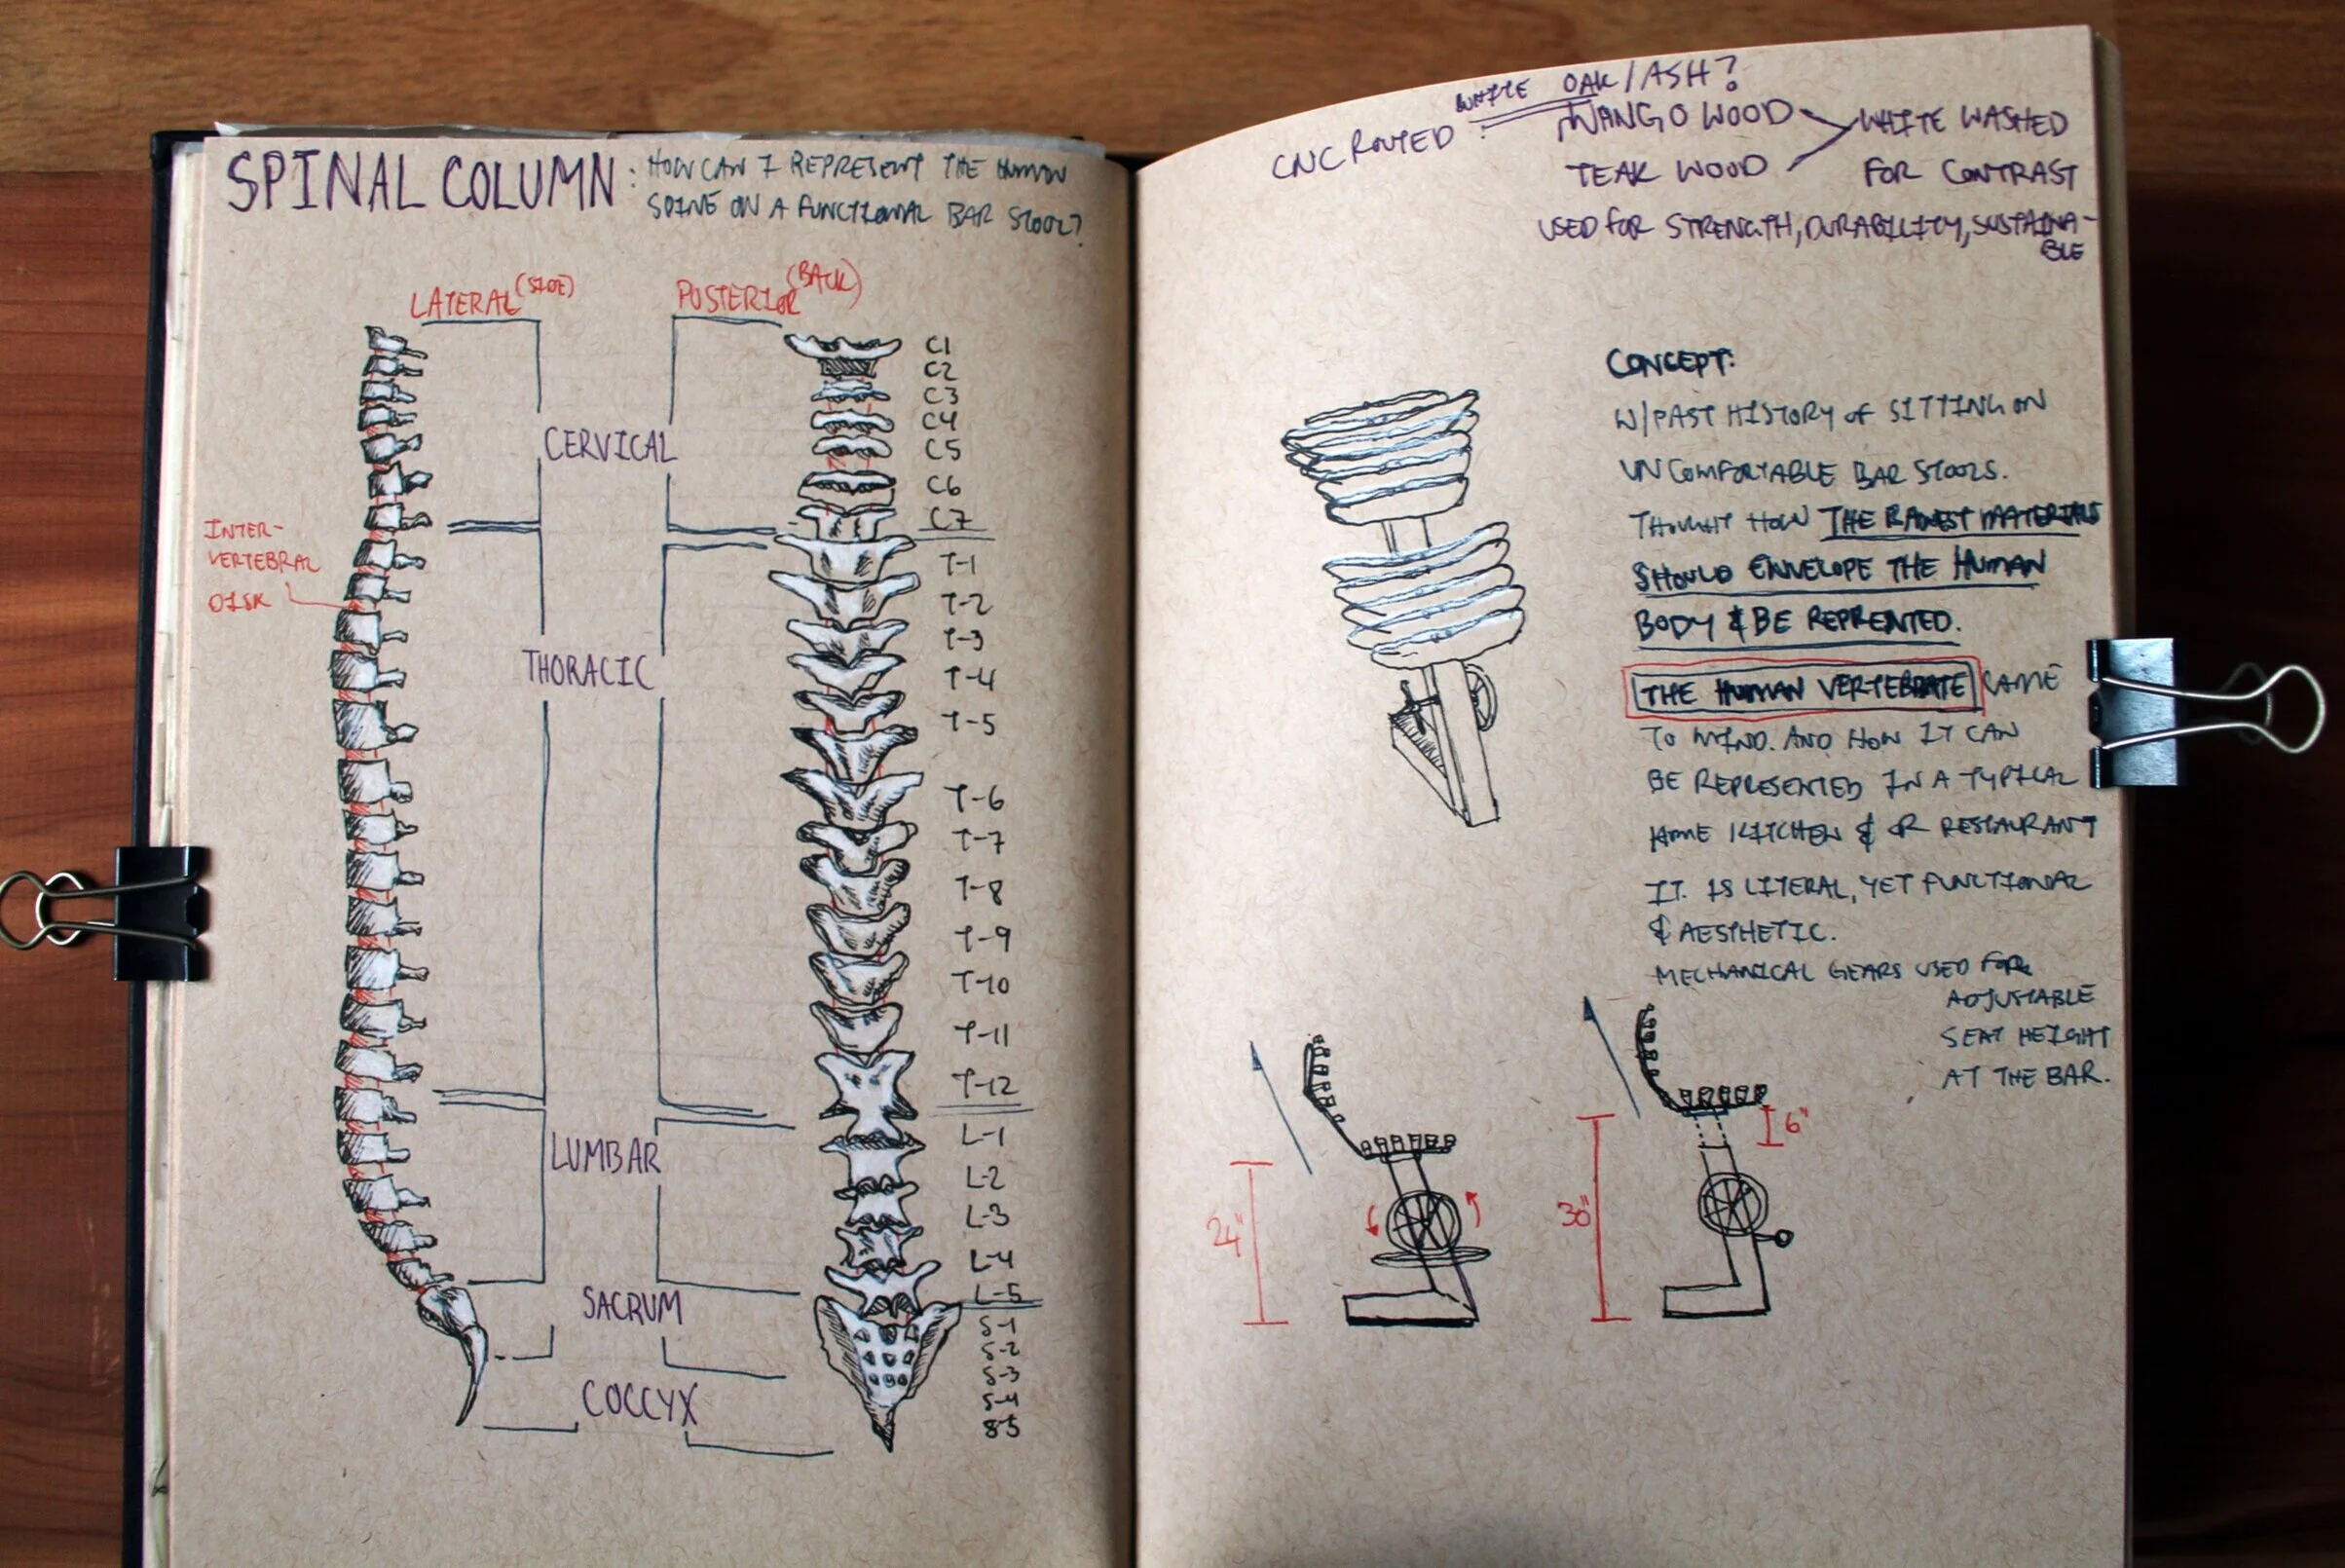 SPINAL COLUMN: HOW CAN I REPRESENT THE HUMAN
SPINE ON A FUNCTIONAL BAR STOOL?
LATERAL (SIDE)
POSTERIOR (BACK)
C1
C2
C3
C4
C5
C6
C7
CERVICAL
INTER-
VERTEBRAL
DISK
T-1
T-2
T-3
T-4
T-5
THORACIC
T-6
T-7
T-8
T-9
T-10
T-11
T-12
L-1
L-2
L-3
L-4
L-5
LUMBAR
SACRUM
S-1
S-2
S-3
S-4
S5
COCCYX
WHITE OAK/ASH?
CNC ROUTED: MANGO WOOD
TEAK WOOD
WHITE WASHED
FOR CONTRAST
USED FOR STRENGTH, DURABILITY, SUSTAINA-
BLE
CONCEPT:
W/PAST HISTORY OF SITTING ON
UNCOMFORTABLE BAR STOOLS.
THOUGHT HOW THE RAWEST MATERIALS
SHOULD ENVELOPE THE HUMAN
BODY & BE REPRENTED.
THE HUMAN VERTEBRATE CAME
TO MIND. AND HOW IT CAN
BE REPRESENTED IN A TYPICAL
HOME KITCHEN & OR RESTAURANT
IT IS LITERAL, YET FUNCTIONAL
& AESTHETIC.
MECHANICAL GEARS USED FOR
ADJUSTABLE
SEAT HEIGHT
AT THE BAR.
24"
30"
6"